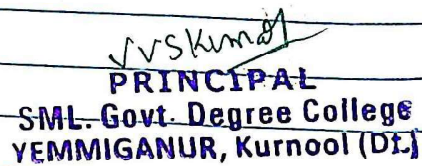 VVSKumar
PRINCIPAL
SML. Govt. Degree College
YEMMIGANUR, Kurnool (Dt.)